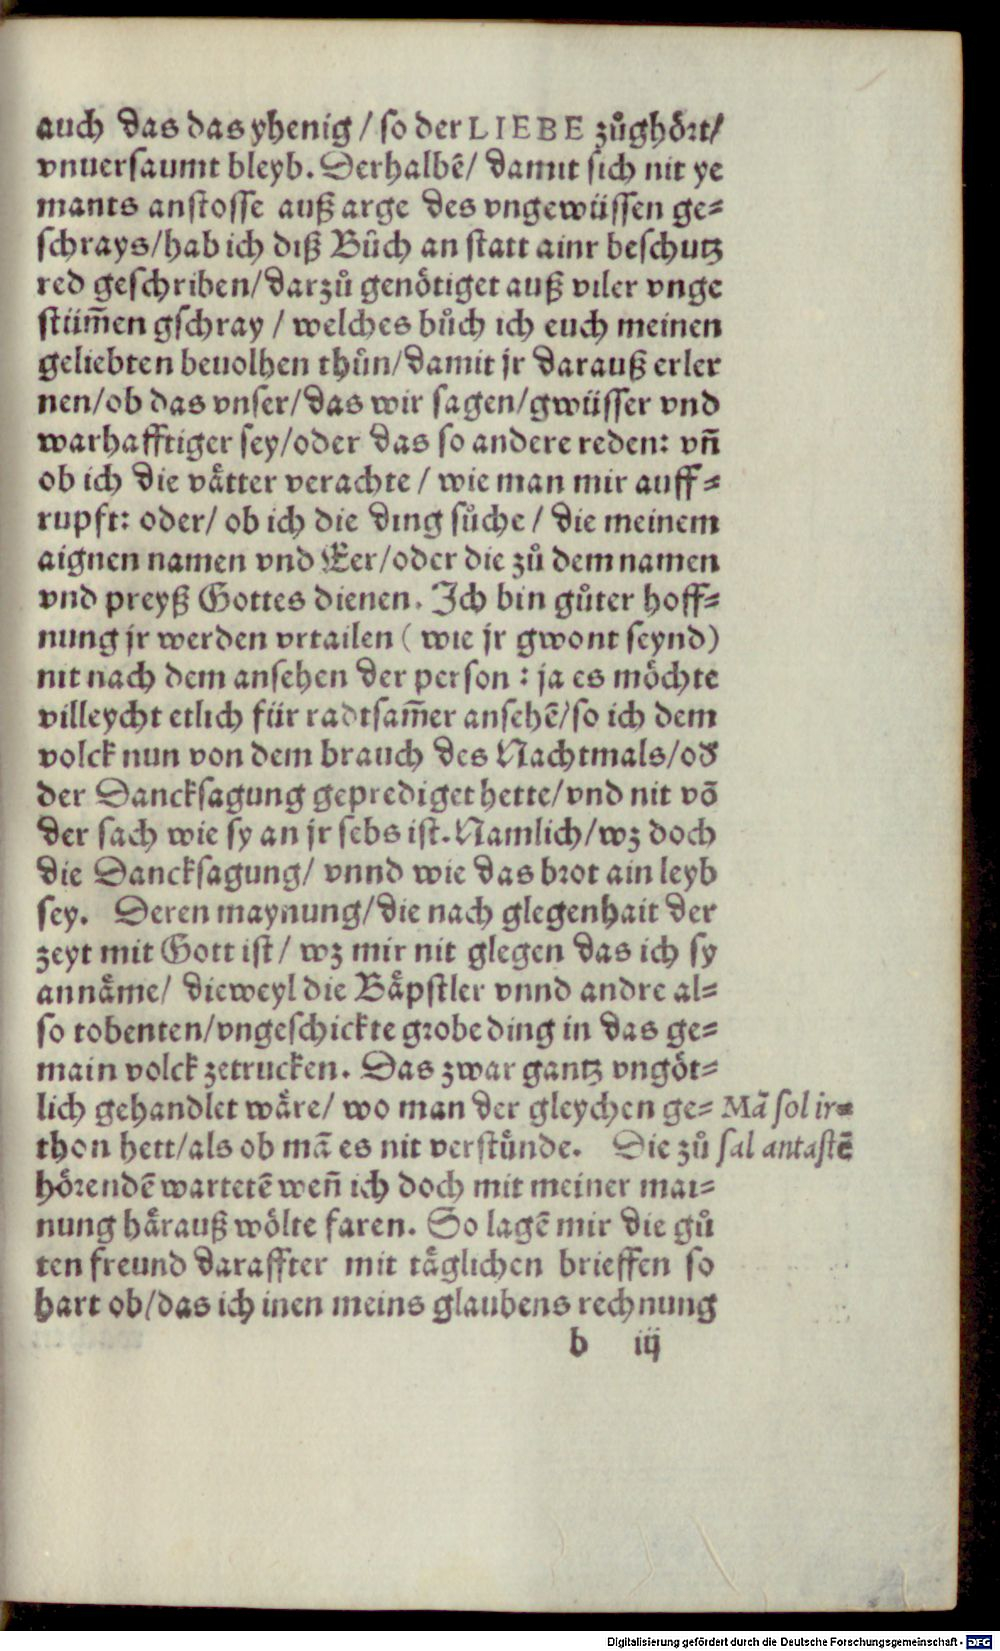 auch das das yhenig / so der LIEBE zůghört/
vnuersaumt bleyb. Derhalbē/ damit sich nit ye
mants anstosse auß arge des vngewüssen ge⸗
schrays/hab ich diß Bůch an statt ainr beschutz
red geschriben/darzů genötiget auß viler vnge
stüm̄en gschray / welches bůch ich euch meinen
geliebten beuolhen thůn/damit jr darauß erler
nen/ob das vnser/das wir sagen/gwüsser vnd
warhafftiger sey/oder das so andere reden: vn̄
ob ich die vätter verachte / wie man mir auff⸗
rupft: oder/ ob ich die ding sůche / die meinem
aignen namen vnd Eer/oder die zů dem namen
vnd preyß Gottes dienen. Ich bin gůter hoff⸗
nung jr werden vrtailen ( wie jr gwont seynd)
nit nach dem ansehen der person : ja es möchte
villeycht etlich für radtsam̄er ansehē/so ich dem
volck nun von dem brauch des Nachtmals/od
der Dancksagung geprediget hette/vnd nit vō
der sach wie sy an jr sebs ist. Namlich/wz doch
die Dancksagung/ vnnd wie das brot ain leyb
sey. Deren maynung/die nach glegenhait der
zeyt mit Gott ist/ wz mir nit glegen das ich sy
annäme/ dieweyl die Bäpstler vnnd andre al⸗
so tobenten/vngeschickte grobe ding in das ge⸗
main volck zetrucken. Das zwar gantz vngöt⸗
lich gehandlet wäre/ wo man der gleychen ge⸗ Mā sol ir⸗
thon hett/als ob mā es nit verstünde. Die zů sal antastē
hörendē wartetē wen̄ ich doch mit meiner mai⸗
nung härauß wölte faren. So lagē mir die gů
ten freund daraffter mit täglichen brieffen so
hart ob/das ich inen meins glaubens rechnung
b iij
Digitalisierung gefördert durch die Deutsche Forschungsgemeinschaft - DFG